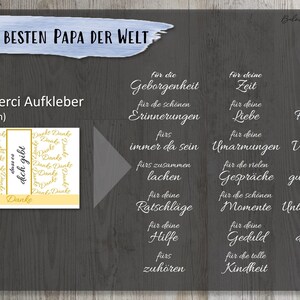 BESTEN PAPA DER WELT
erci Aufkleber
dass es
dich gibt
Danke
für die
Geborgenheit
für die schönen
Erinnerungen
fürs
immer da sein
fürs zusammen
lachen
für deine
Ratschläge
für deine
Hilfe
fürs
zuhören
für deine
Zeit
für deine
Liebe
für deine
Umarmungen
für die vielen
Gespräche
für die schönen
Momente
für deine
Geduld
für die tolle
Kindheit